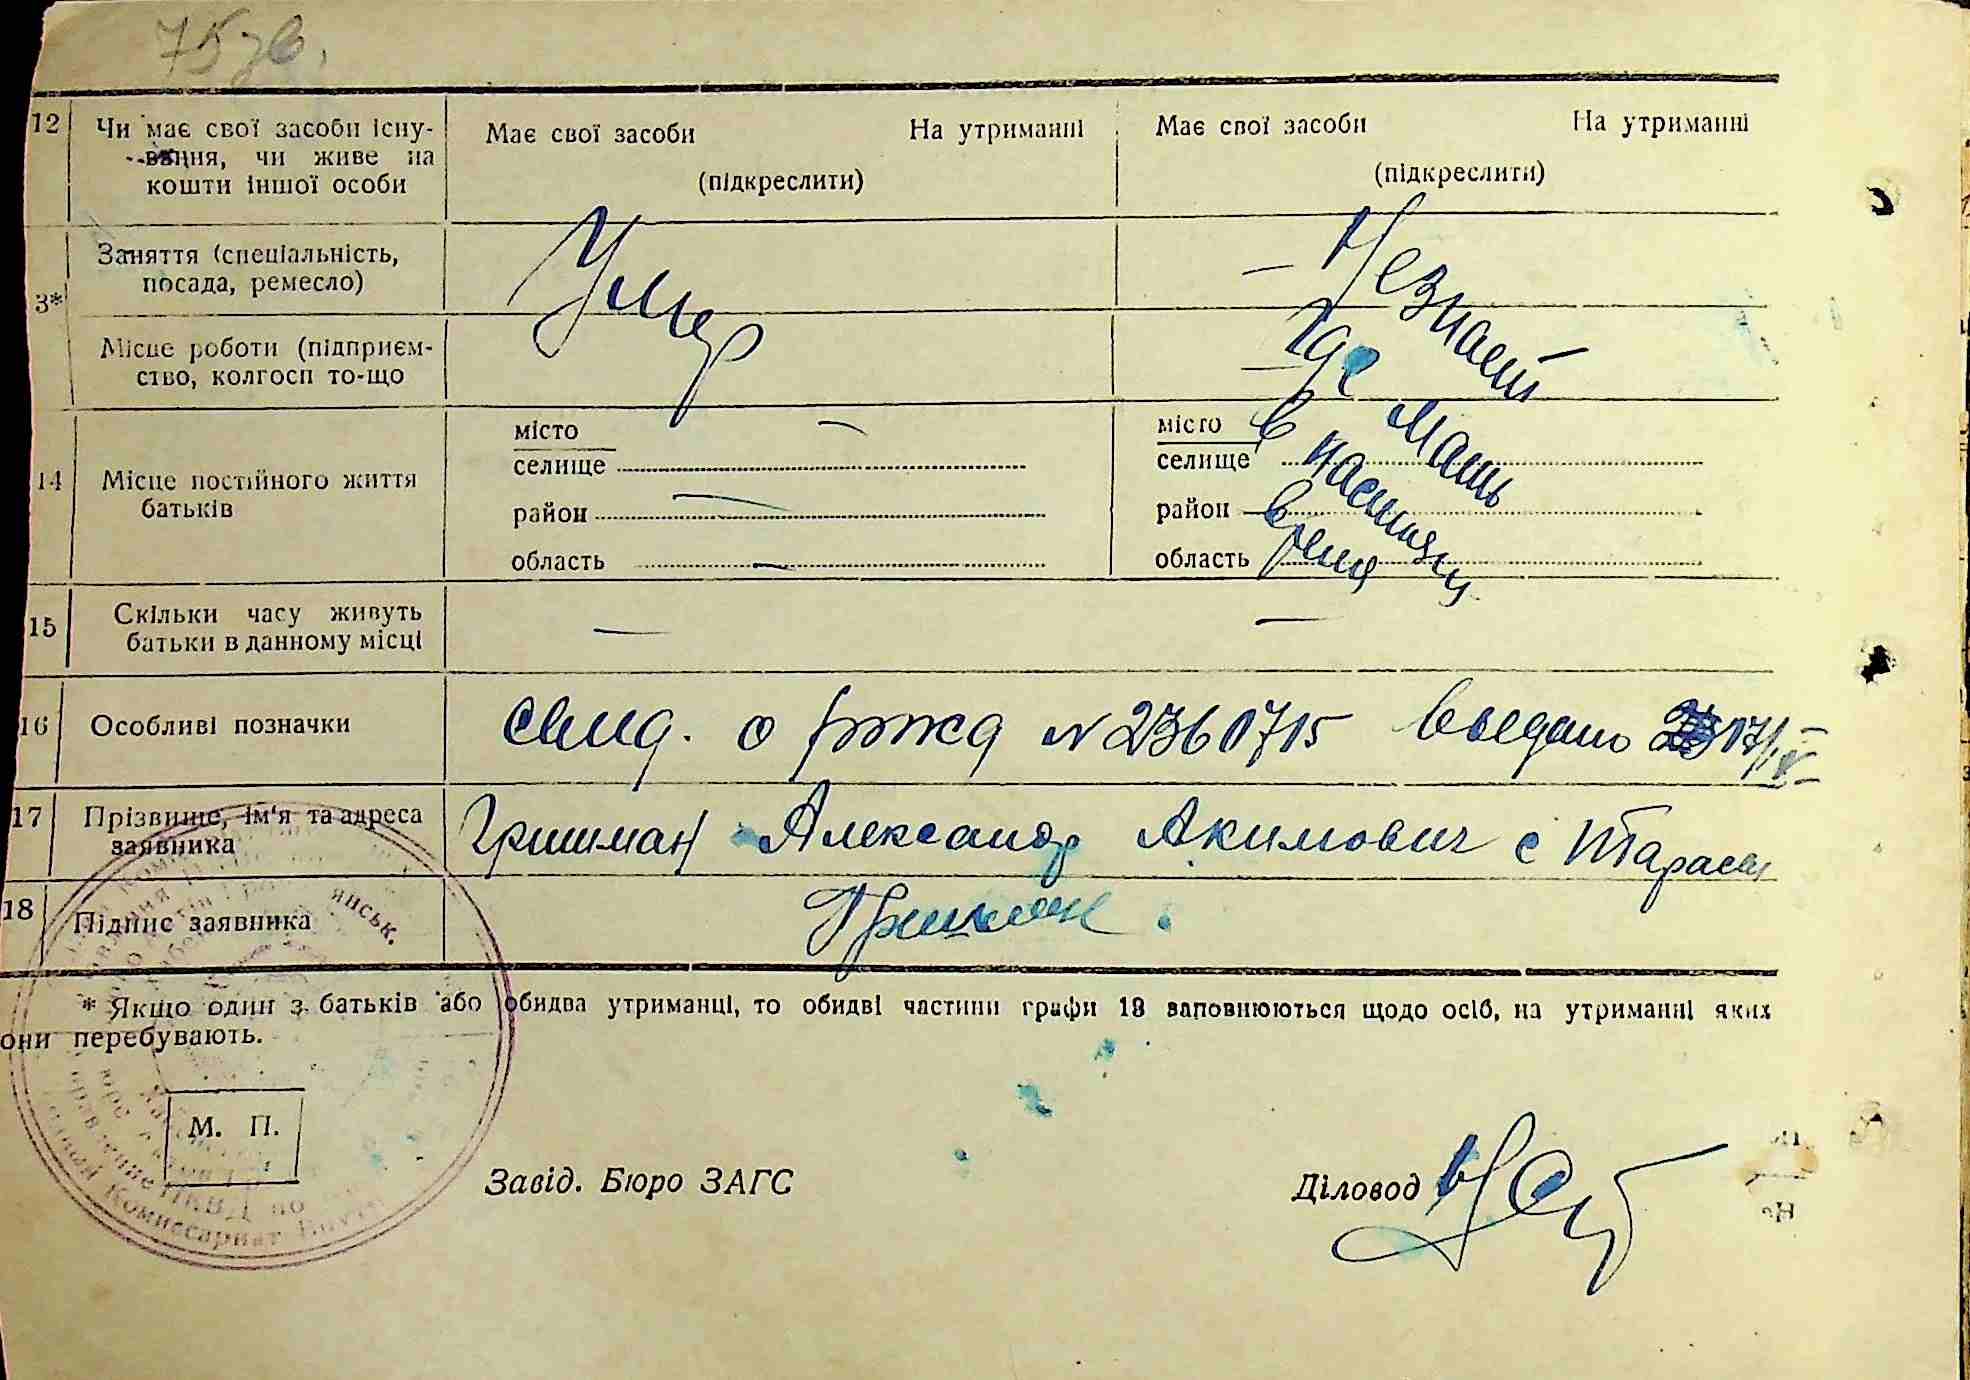 75 зв.
12 Чи має свої засоби існу-
вання, чи живе на
кошти іншої особи
Має свої засоби На утриманні
(підкреслити)
Має свої засоби На утриманні
(підкреслити)
3*
Заняття (спеціальність,
посада, ремесло)
Місце роботи (підприєм-
ство, колгосп то-що
Умер
— Незнает
— где мать
в настоящ
время
14 Місце постійного життя
батьків
місто —
селище
район —
область —
місто
селище
район —
область
15 Скільки часу живуть
батьки в данному місці
— —
16 Особливі позначки
свид. о рожд N 2360715 выдано 17/IV
17 Прізвище, ім'я та адреса
заявника
Гришман Александр Акимович с Тарасы
18 Підпис заявника
Гришман.
* Якщо один з батьків або обидва утриманці, то обидві частини графи 13 заповнюються щодо осіб, на утриманні яких
они перебувають.
М. П.
Завід. Бюро ЗАГС
Діловод
янськ.
НКВД по
Комиссариат Внут